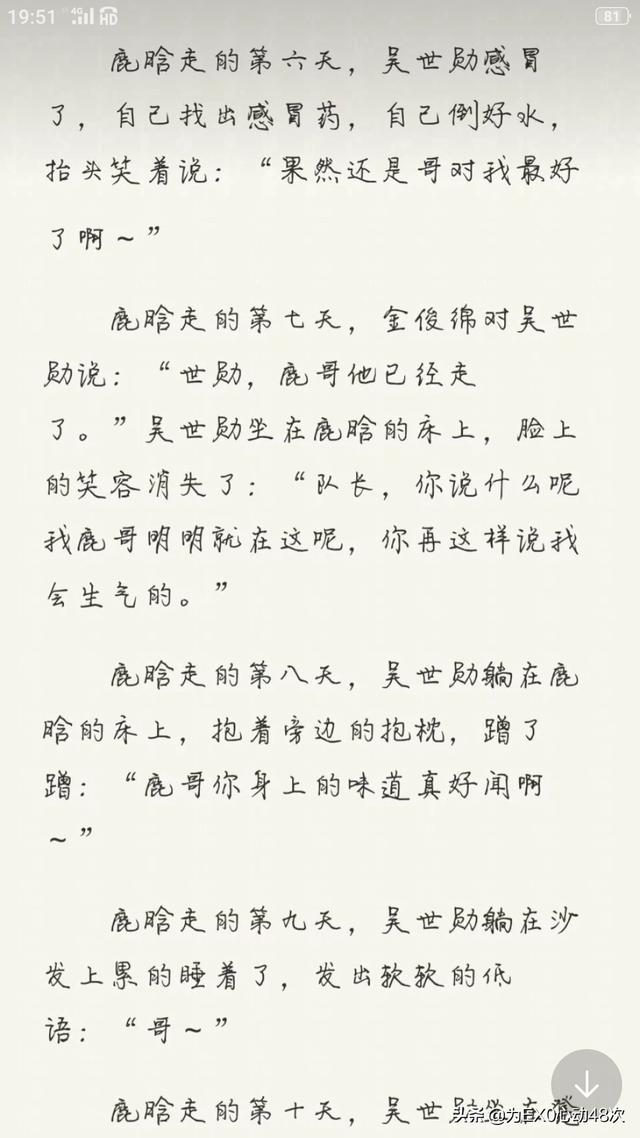 19:51 4G HD 81
鹿晗走的第六天，吴世勋感冒
了，自己找出感冒药，自己倒好水，
抬头笑着说：“果然还是哥对我最好
了啊～”
鹿晗走的第七天，金俊绵对吴世
勋说：“世勋，鹿哥他已经走
了。”吴世勋坐在鹿晗的床上，脸上
的笑容消失了：“队长，你说什么呢
我鹿哥明明就在这呢，你再这样说我
会生气的。”
鹿晗走的第八天，吴世勋躺在鹿
晗的床上，抱着旁边的抱枕，蹭了
蹭：“鹿哥你身上的味道真好闻啊
～”
鹿晗走的第九天，吴世勋躺在沙
发上累的睡着了，发出软软的低
语：“哥～”
鹿晗走的第十天，吴世勋
头条@为EXO心动48次